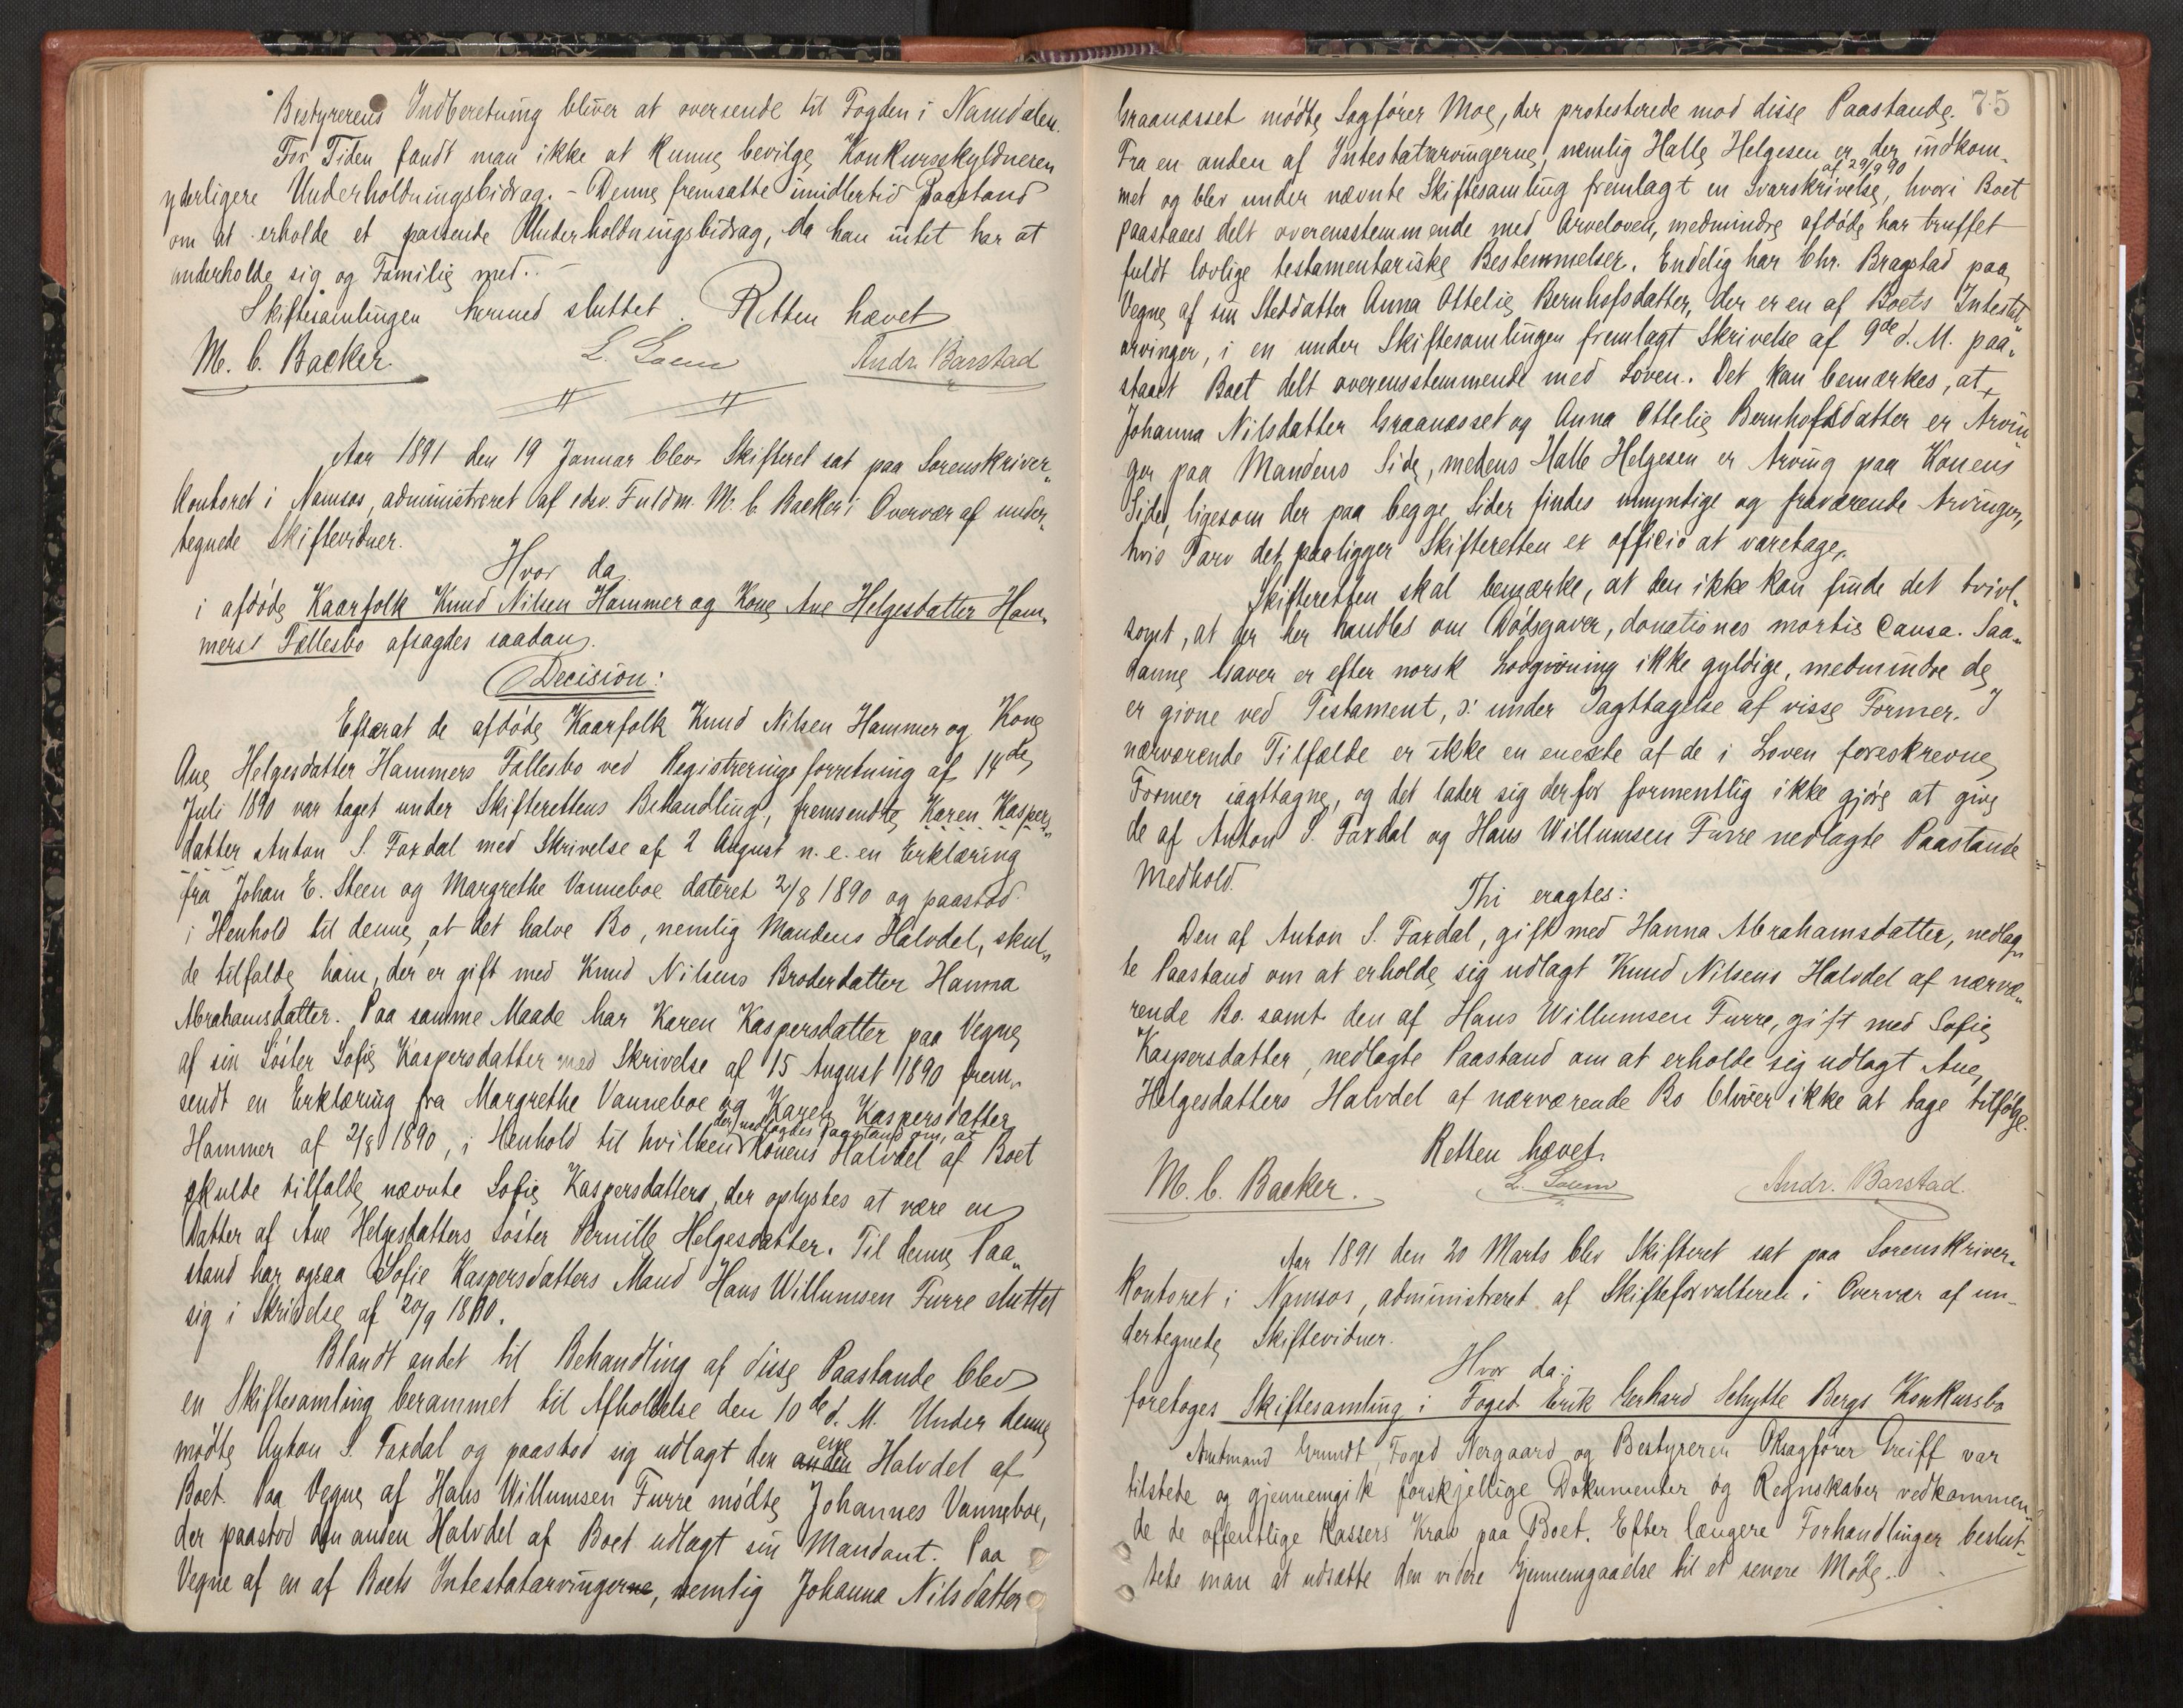 Bestyrerens Indberetning bliver at oversende til Fogden i Namdalen.
For Tiden fandt man ikke at kunne bevilge Konkursskyldneren
yderligere Underholdningsbidrag. - Denne fremsatte imidlertid Paastand
om at erholde et passende Underholdningsbidrag, da han intet har at
underholde sig og Familie med. -
Skiftesamlingen hermed sluttet. Retten hævet
M. C. Backer. L. Soem Andr. Barstad
Aar 1891 den 19 Januar blev Skifteret sat paa Sorenskriver„
kontoret i Namsos, administreret af edsv. Fuldm. M. C. Backer i Overvær af under„
tegnede Skiftevidner.
Hvor da
i afdøde Kaarfolk Knud Nilsen Hammer og Kone Ane Helgesdatter Ham„
mers Fællesbo afsagdes saadan
Decision:
Efterat de afdøde Kaarfolk Knud Nilsen Hammer og Kone
Ane Helgesdatter Hammers Fællesbo ved Registreringsforretning af 14de
Juli 1890 var taget under Skifterettens Behandling, fremsendte Karen Kaspers„
datter Anton S. Fardal med Skrivelse af 2 August n. e. en Erklæring
fra Johan E. Steen og Margrethe Vanneboe dateret 2/8 1890 og paastod
i Henhold til denne, at det halve Bo, nemlig Mandens Halvdel, skul„
de tilfalde ham, der er gift med Knud Nilsens Broderdatter Hanna
Abrahamsdatter. Paa samme Maade har Karen Kaspersdatter paa Vegne
af sin Søster Sofie Kaspersdatter med Skrivelse af 15 August 1890 frem„
sendt en Erklæring fra Margrethe Vanneboe og Karen Kaspersdatter
der nedlagdes Paastand om, at
Hammer af 2/8 1890, i Henhold til hvilken Konens Halvdel af Boet
skulde tilfalde nævnte Sofie Kaspersdatters, der oplystes at være en
Datter af Ane Helgesdatters Søster Pernille Helgesdatter. Til denne Paa„
stand har ogsaa Sofie Kaspersdatters Mand Hans Willumsen Furre sluttet
sig i Skrivelse af 20/9 1890.
Blandt andet til Behandling af disse Paastande blev
en Skiftesamling berammet til Afholdelse den 10de d. M. Under denne
mødte Anton S. Fardal og paastod sig udlagt den anden ene Halvdel af
Boet. Paa Vegne af Hans Willumsen Furre mødte Johannes Vanneboe,
der paastod den anden Halvdel af Boet udlagt sin Mandant. Paa
Vegne af en af Boets Intestatarvingerne, nemlig Johanna Nilsdatter
75
Graanæsset mødte Sagfører Moe, der protesterede mod disse Paastande.
Fra en anden af Intestatarvingerne, nemlig Halle Helgesen er der indkom„
af 29/9 90
met og blev under nævnte Skiftesamling fremlagt en Svarskrivelse, hvori Boet
paastaaes delt overensstemmende med Arveloven, medmindre afdøde har truffet
fuldt lovlige testamentariske Bestemmelser. Endelig har Chr. Bragstad paa
Vegne af sin Steddatter Anna Ottelie Bernhofsdatter, der er en af Boets Intestat„
arvinger, i en under Skiftesamlingen fremlagt Skrivelse af 9de d. M. paa„
staaet Boet delt overensstemmende med Loven. Det kan bemærkes, at
Johanna Nilsdatter Graanæsset og Anna Ottelie Bernhofsdatter er Arvin„
ger paa Mandens Side, medens Halle Helgesen er Arving paa Konens
Side, ligesom der paa begge Sider findes umyndige og fraværende Arvinger,
hvis Tarv det paaligger Skifteretten ex officio at varetage.
Skifteretten skal bemærke, at den ikke kan finde det tvivl„
somt, at der her handles om Dødsgaver, donationes mortis causa. Saa„
danne Gaver er efter norsk Lovgivning ikke gyldige, medmindre de
er givne ved Testament, ɔ: under Iagttagelse af visse Former. I
nærværende Tilfælde er ikke en eneste af de i Loven foreskrevne
Former iagttagne, og det lader sig derfor formentlig ikke gjøre at give
de af Anton S. Fardal og Hans Willumsen Furre nedlagte Paastande
Medhold.
Thi eragtes:
Den af Anton S. Fardal, gift med Hanna Abrahamsdatter, nedlag„
te Paastand om at erholde sig udlagt Knud Nilsens Halvdel af nærvæ„
rende Bo. samt den af Hans Willumsen Furre, gift med Sofie
Kaspersdatter, nedlagte Paastand om at erholde sig udlagt Ane
Helgesdatters Halvdel af nærværende Bo bliver ikke at tage tilfølge.
Retten hævet.
M. C. Backer. L. Soem Andr. Barstad.
Aar 1891 den 20 Marts blev Skifteret sat paa Sorenskriver„
kontoret i Namsos, administreret af Skifteforvalteren i Overvær af un-
dertegnede Skiftevidner.
Hvor da:
foretoges Skiftesamling i Foged Erik Gerhard Schytte Bergs Konkursbo
Amtmand Grundt, Foged Nergaard og Bestyreren ORsagfører Greiff var
tilstede og gjennemgik forskjellige Dokumenter og Regnskaber vedkommen„
de de offentlige Kassers Krav paa Boet. Efter længere Forhandlinger beslut-
tede man at udsætte den videre Gjennemgaaelse til et senere Møde.